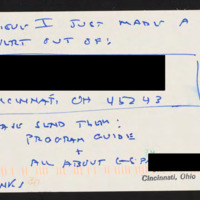 I JUST MADE A
OUT OF:
CINCINNATI OH 45243
SEND THEM:
PROGRAM GUIDE
+
ALL ABOUT
Cincinnati, Ohio